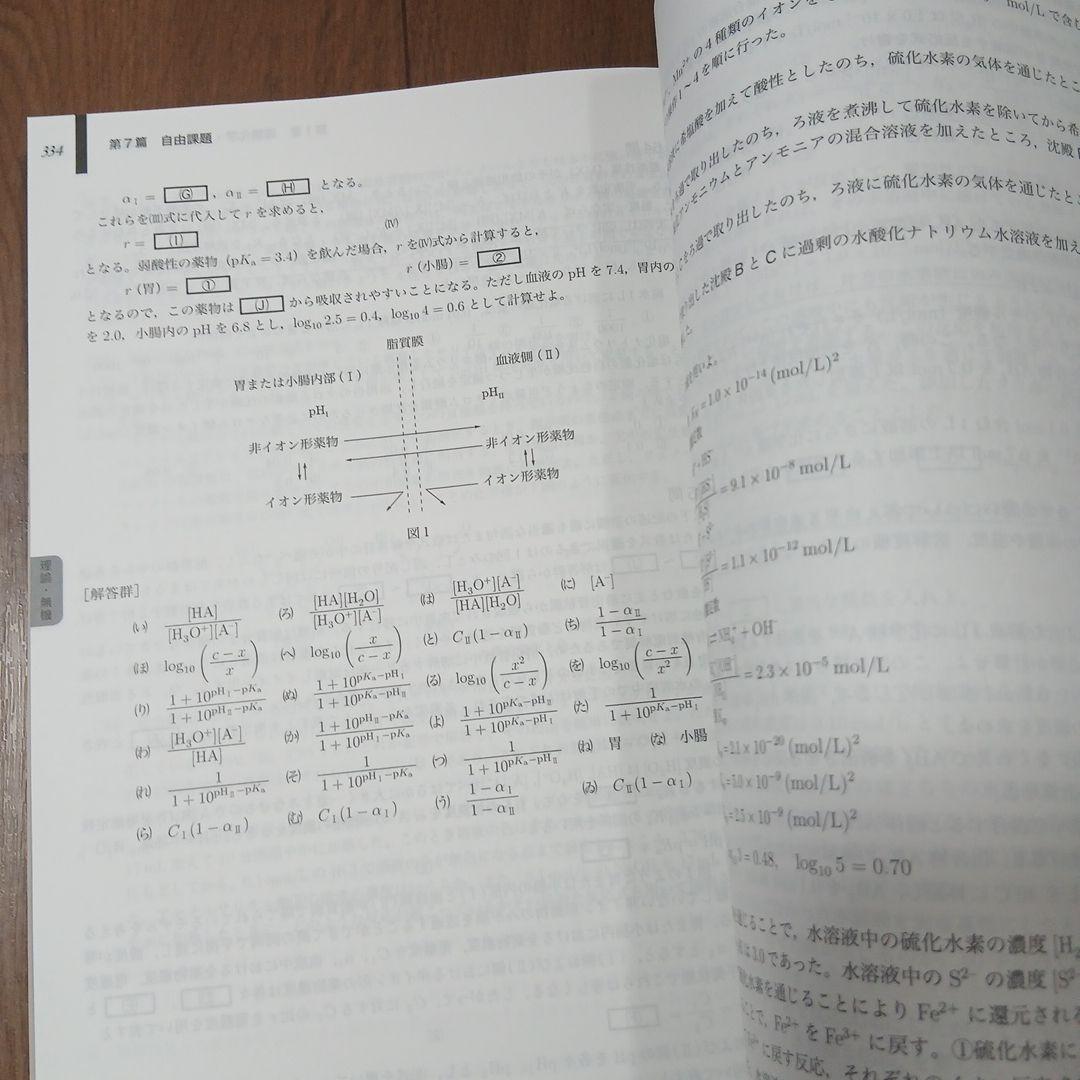 334
第7篇 自由課題
α_Ⅰ = (G) , α_Ⅱ = (H) となる。
これらを(Ⅲ)式に代入して r を求めると,
r = (I) (Ⅳ)
となる。弱酸性の薬物 (pKₐ = 3.4) を飲んだ場合, r を(Ⅳ)式から計算すると,
r (胃) = ① r (小腸) = ②
となるので, この薬物は (J) から吸収されやすいことになる。ただし血液の pH を 7.4, 胃内の
を 2.0, 小腸内の pH を 6.8 とし, log₁₀ 2.5 = 0.4, log₁₀ 4 = 0.6 として計算せよ。
脂質膜
胃または小腸内部 (Ⅰ) 血液側 (Ⅱ)
pH_Ⅰ pH_Ⅱ
非イオン形薬物 非イオン形薬物
イオン形薬物 イオン形薬物
図1
理論・無機
[解答群]
(い) [HA]/[H₃O⁺][A⁻] (ろ) [HA][H₂O]/[H₃O⁺][A⁻] (は) [H₃O⁺][A⁻]/[HA][H₂O] (に) [A⁻]
(ほ) log₁₀((c−x)/x) (へ) log₁₀(x/(c−x)) (と) C_Ⅱ(1−α_Ⅱ) (ち) (1−α_Ⅱ)/(1−α_Ⅰ)
(り) (1+10^(pH_Ⅰ−pKₐ))/(1+10^(pH_Ⅱ−pKₐ)) (ぬ) (1+10^(pKₐ−pH_Ⅰ))/(1+10^(pKₐ−pH_Ⅱ)) (る) log₁₀(x²/(c−x)) (を) log₁₀((c−x)/x²)
(わ) [H₃O⁺][A⁻]/[HA] (か) (1+10^(pH_Ⅱ−pKₐ))/(1+10^(pH_Ⅰ−pKₐ)) (よ) (1+10^(pKₐ−pH_Ⅱ))/(1+10^(pKₐ−pH_Ⅰ)) (た) 1/(1+10^(pKₐ−pH_Ⅰ))
(れ) 1/(1+10^(pH_Ⅱ−pKₐ)) (そ) 1/(1+10^(pH_Ⅰ−pKₐ)) (つ) 1/(1+10^(pKₐ−pH_Ⅱ)) (ね) 胃 (な) 小腸
(ら) C_Ⅰ(1−α_Ⅱ) (む) C_Ⅰ(1−α_Ⅰ) (う) (1−α_Ⅰ)/(1−α_Ⅱ) (ゐ) C_Ⅱ(1−α_Ⅰ)
mol/L で含む
Mn²⁺ の4種類のイオンを
1〜4を順に行った。
に希塩酸を加えて酸性としたのち, 硫化水素の気体を通じたとこ
過で取り出したのち, ろ液を煮沸して硫化水素を除いてから希
アンモニウムとアンモニアの混合溶液を加えたところ, 沈殿
をろ過で取り出したのち, ろ液に硫化水素の気体を通じたとこ
出した沈殿BとCに過剰の水酸化ナトリウム水溶液を加え
た。
= 1.0 × 10⁻¹⁴ (mol/L)²
= 9.1 × 10⁻⁸ mol/L
= 1.1 × 10⁻¹² mol/L
+ OH⁻
= 2.3 × 10⁻⁵ mol/L
10⁻²⁰ (mol/L)²
10⁻⁹ (mol/L)²
10⁻⁹ (mol/L)²
= 0.48, log₁₀ 5 = 0.70
ことで, 水溶液中の硫化水素の濃度 [H₂
は3.0であった。水溶液中の S²⁻ の濃度 [S²
水素を通じることにより Fe²⁺ に還元される
ことで, Fe²⁺ を Fe³⁺ に戻す。①硫化水素に
に戻す反応, それぞれ